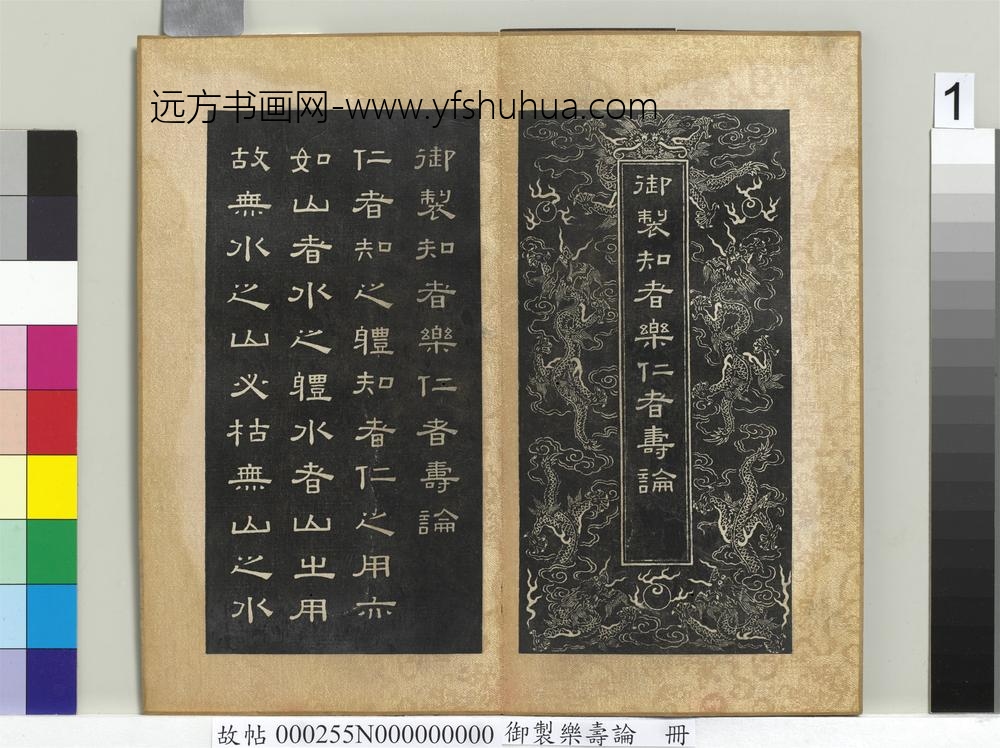 远方书画网-www.yfshuhua.com
1
御製知者樂仁者壽論
御製知者樂仁者壽論
仁者知之體知者仁之用亦
如山者水之體水者山之用
故無水之山必枯無山之水
故帖 000255N000000000 御製樂壽論 冊